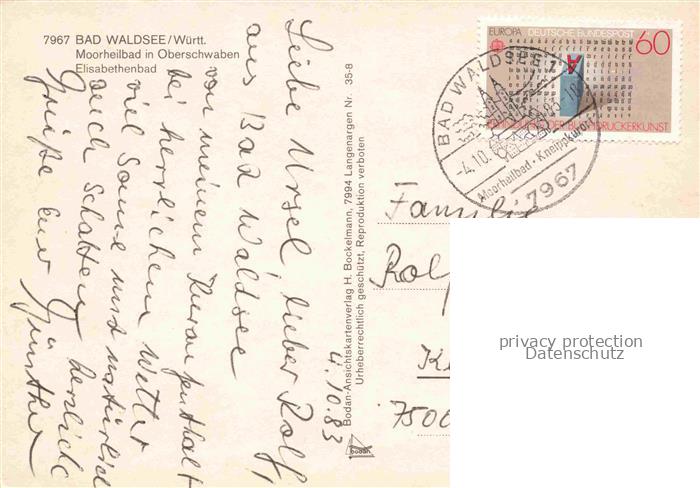 7967 BAD WALDSEE/Württ.
Moorheilbad in Oberschwaben
Elisabethenbad
Liebe Ursel, lieber Rolf,
aus Bad Waldsee
von meinem Kuraufenthalt
bei herrlichem Wetter
viel Sonne und natürlich
auch Schatten herzliche
Grüße Euer Günther
4.10.83
Bodan-Ansichtskartenverlag H. Bockelmann, 7994 Langenargen Nr. 35-8
Urheberrechtlich geschützt, Reproduktion verboten
bodan
EUROPA DEUTSCHE BUNDESPOST 60
BUCHDRUCKERKUNST
BAD WALDSEE 1
-4.10.83-18
Moorheilbad · Kneippkurort
7967
Familie
Rolf
7500
privacy protection
Datenschutz